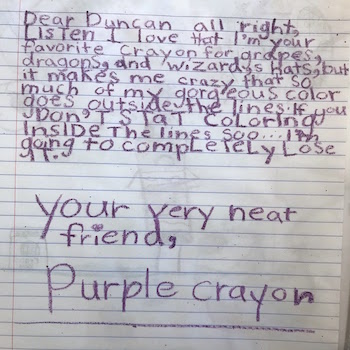 Dear Duncan all right,
Listen I love that I'm your
favorite Crayon for grapes,
dragons, and wizards hats, but
it makes me crazy that so
much of my gorgeous color
goes outside the lines. If you
Don'T STaT CoLoring
InSIDe The lines soo... I'm
going to compLeTeLy Lose
iT.
your very neat
friend,
Purple crayon